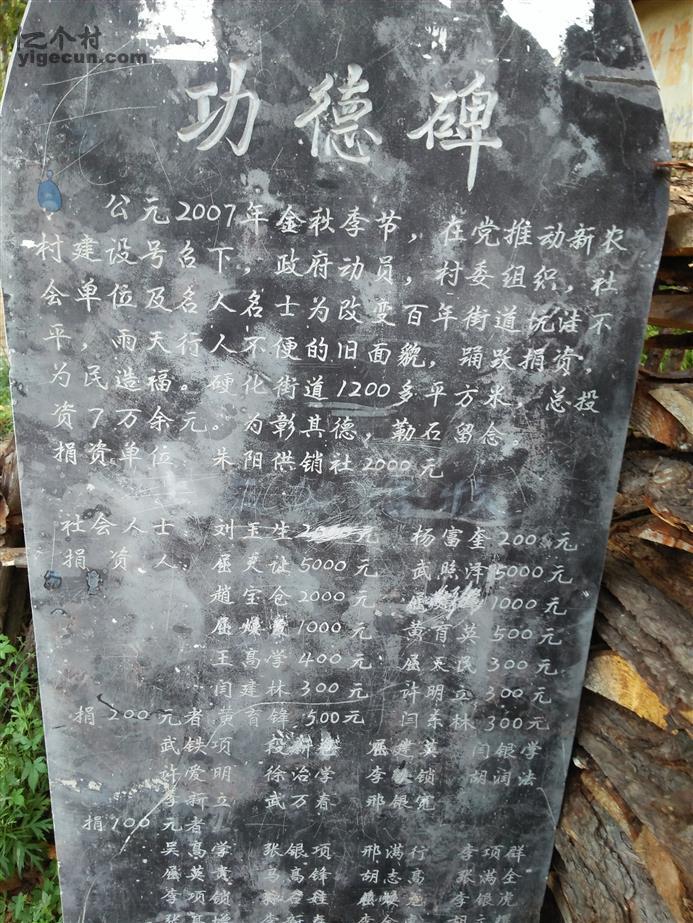 亿个村
yigecun.com
功德碑
公元2007年金秋季节，在党推动新农
村建设号召下，政府动员，村委组织，社
会单位及名人名士为改变百年街道坑洼不
平，雨天行人不便的旧面貌，踊跃捐资，
为民造福。硬化街道1200多平方米，总投
资7万余元。为彰其德，勒石留念。
捐资单位 朱阳供销社2000元
社会人士 刘玉生 元 杨富奎200元
捐资人： 屈天让5000元 武照泽5000元
赵宝仓2000元 屈 1000元
屈 1000元 黄育英500元
王高学400元 屈天民300元
闫建林300元 许明立300元
捐200元者 黄育锋500元 闫东林300元
武铁项 屈建英 闫银学
许爱明 徐治学 李 锁 胡润法
李新立 武万春 邢银宽
捐100元者
吴高学 张银项 邢满行 李项群
屈英贵 马高锋 胡志高 张满全
李项锁 李银虎